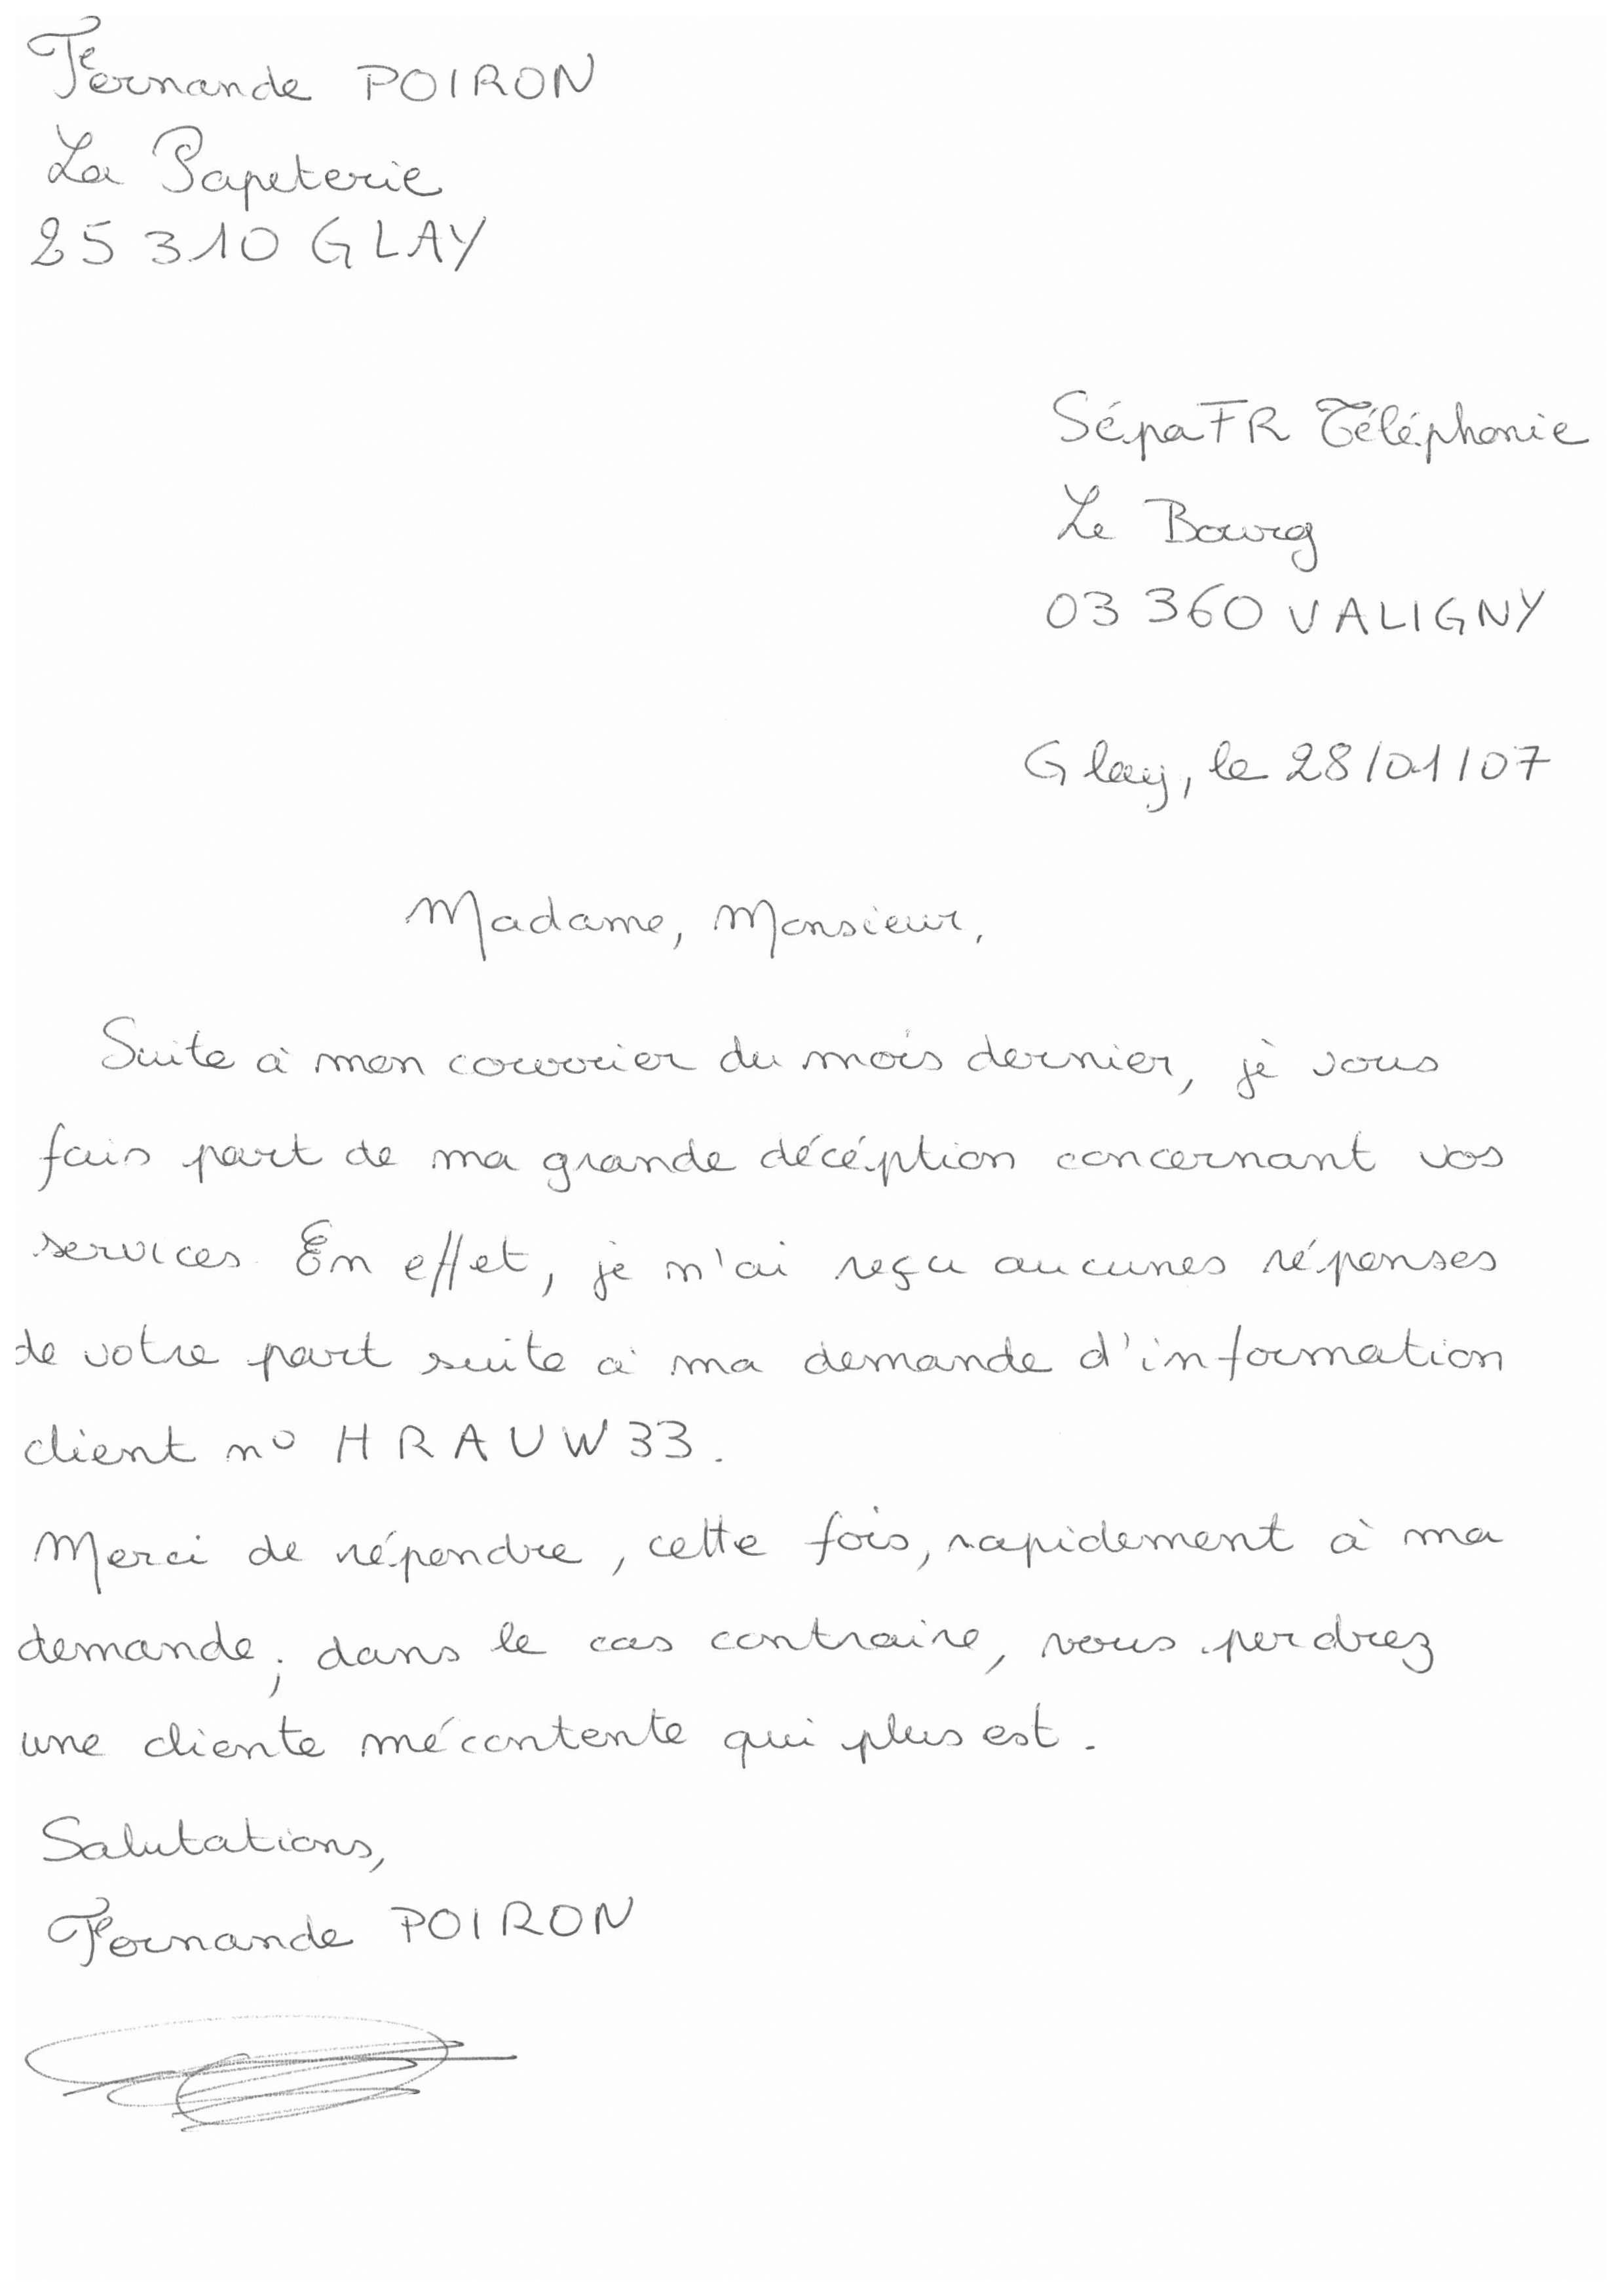 Fernande POIRON
La Papeterie
25310 GLAY
SépaFR Téléphonie
Le Bourg
03360 VALIGNY
Glay, le 28/01/07
Madame, Monsieur,
Suite à mon courrier du mois dernier, je vous
fais part de ma grande décéption concernant vos
services. En effet, je n'ai reçu aucunes réponses
de votre part suite à ma demande d'information
client n° HRAUW33.
Merci de répondre, cette fois, rapidement à ma
demande; dans le cas contraire, vous perdrez
une cliente mécontente qui plus est.
Salutations,
Fernande POIRON